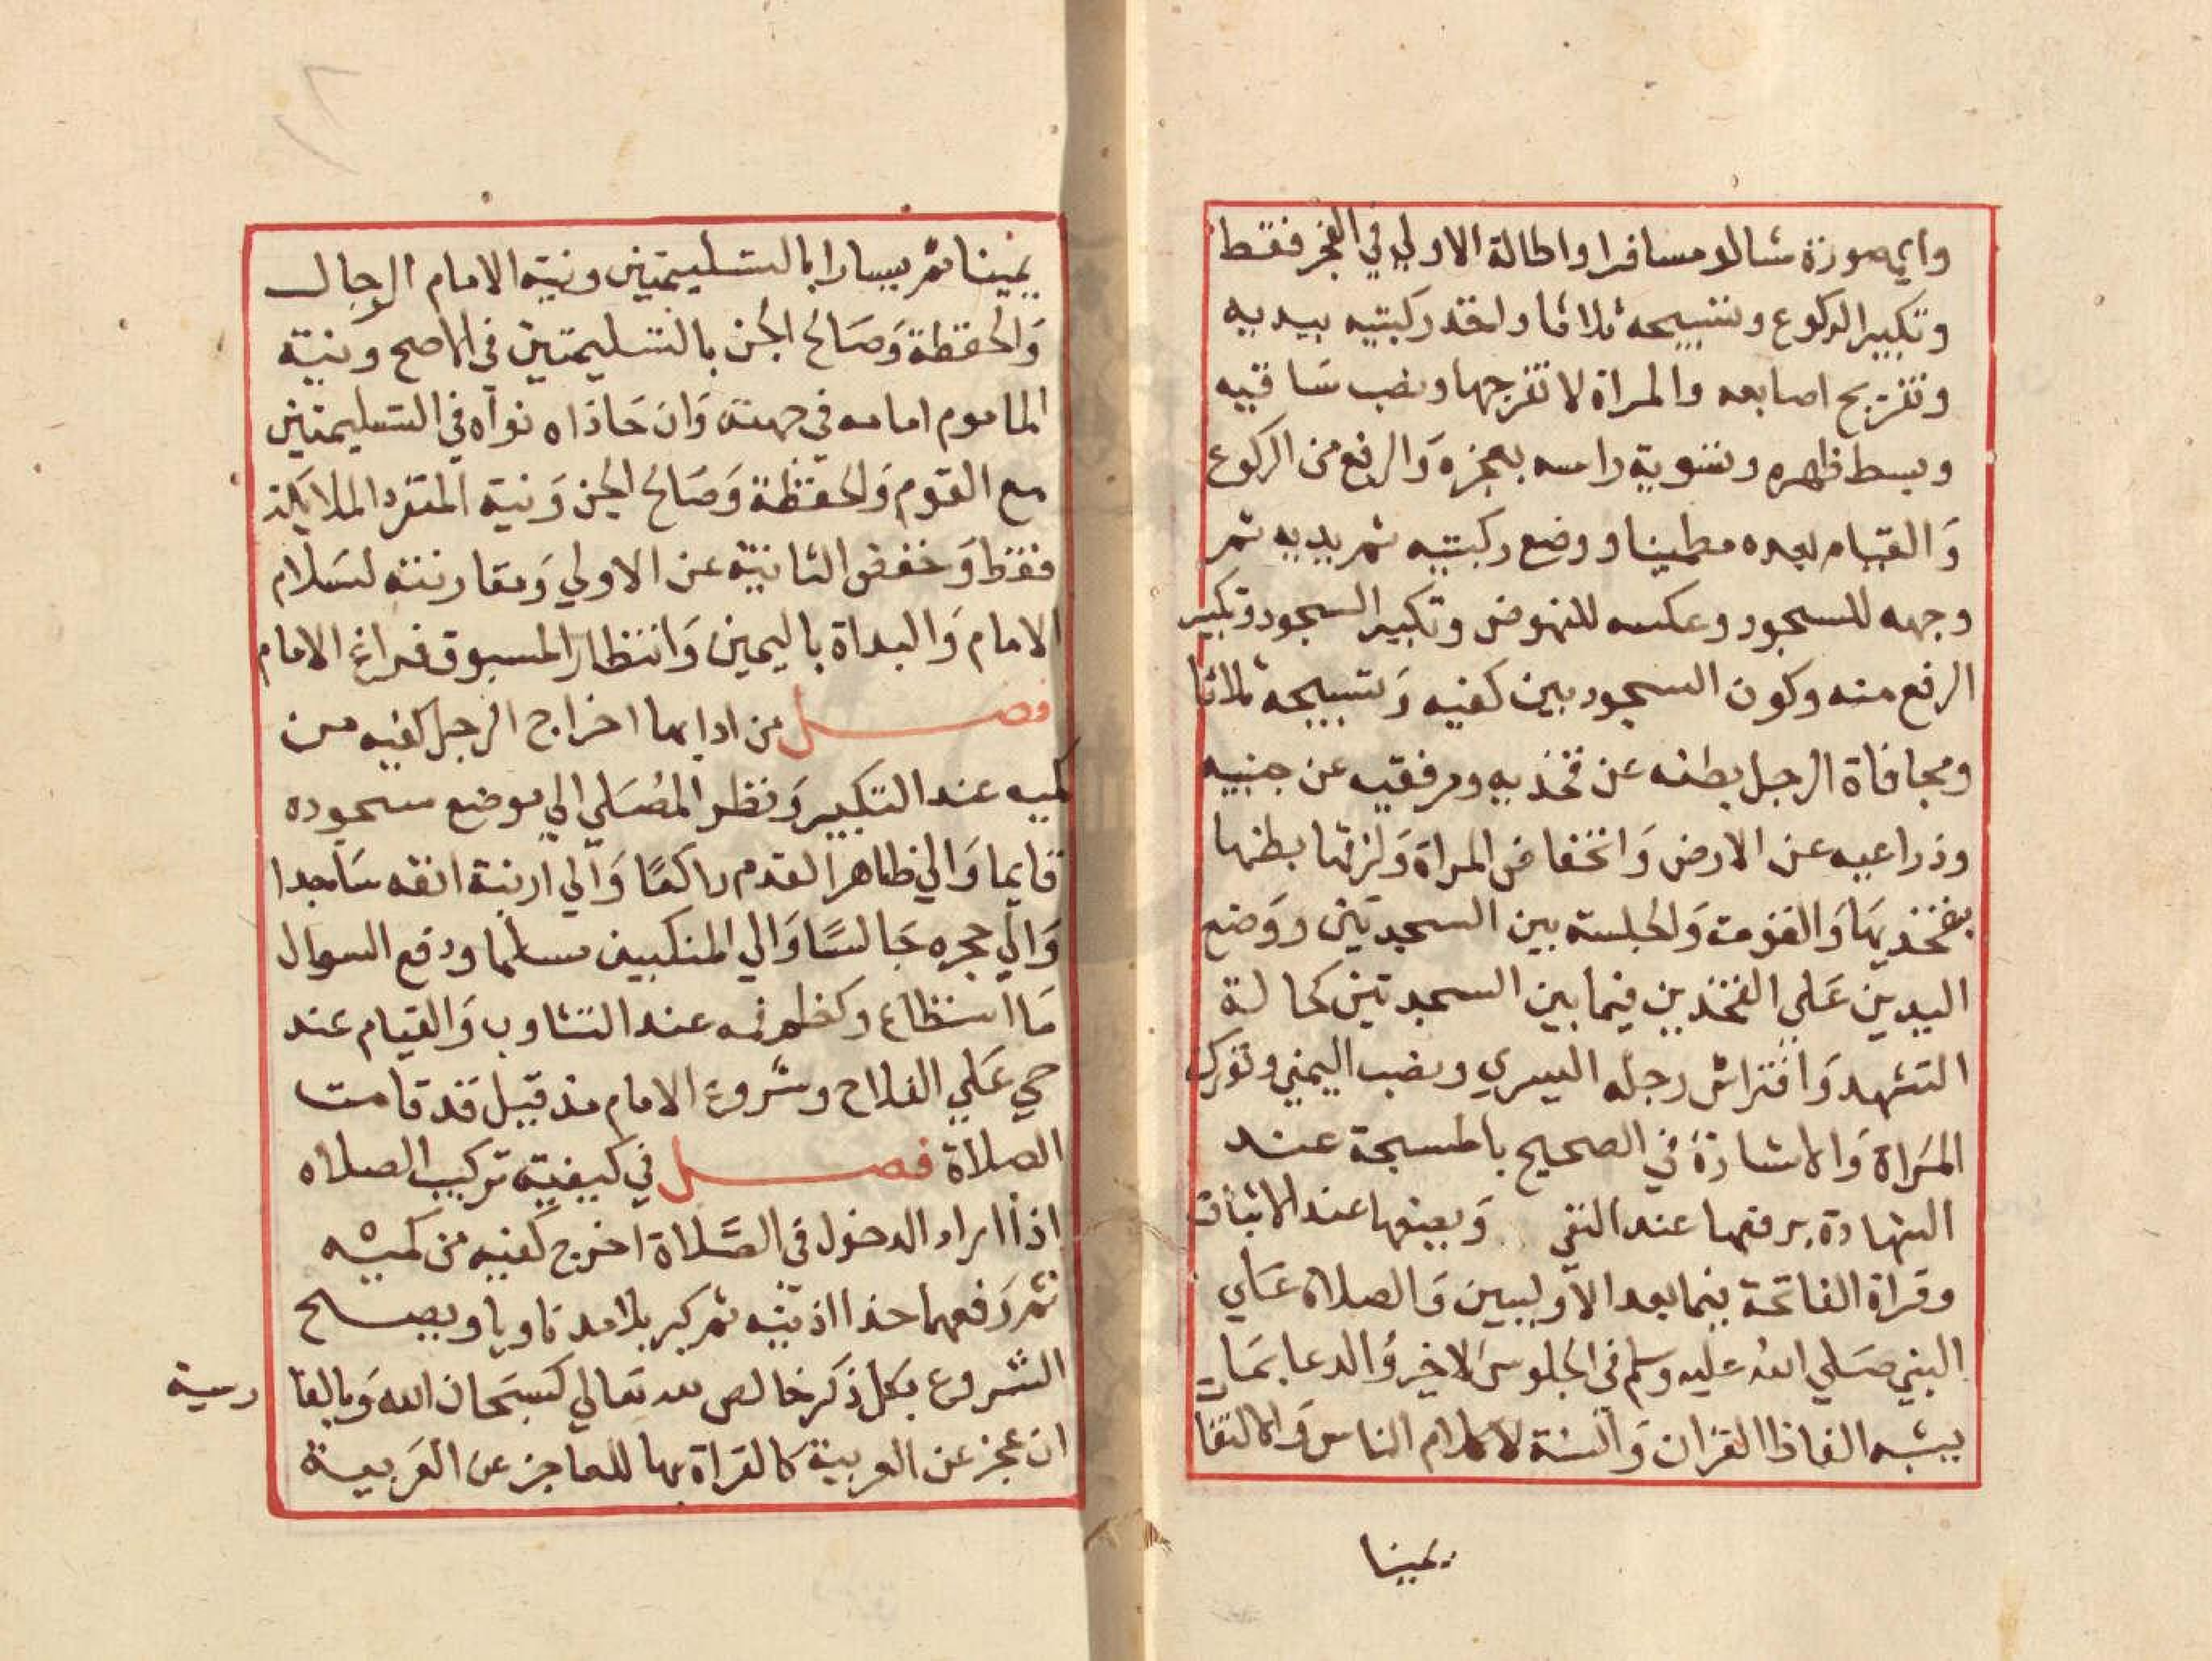 واي صورة شا لو مسافرا واطالة الاولي في الفجر فقط
وتكبير الركوع وتسبيحه ثلاثا واخذ ركبتيه بيديه
وتفريج اصابعه والمراة لا تفرجها ونصب ساقيه
وبسط ظهره وتسوية راسه بعجزه وَالرفع من الركوع
وَالقيام بعده مطمينا ووضع ركبتيه ثم يديه ثم
وجهه للسجود وعكسه للنهوض وتكبير السجود وتكبير
الرفع منه وكون السجود بين كفيه وَتسبيحه ثلاثا
ومجافاة الرجل بطنه عن فخذيه ومرفقيه عن جنبيه
وذراعيه عن الارض وَانخفاض المراة وَلزقها بطنها
بفخذيها وَالقومة وَالجلسة بين السجدتين ووَضع
اليدين عَلي الفخذين فيما بين السجدتين كحالة
التشهد وَافتراش رجله اليسري ونصب اليمني وتورك
المَراة وَالاشارة في الصحيح بالمسبحة عند
الشهادة يرفعها عند النفي وَيضعها عند الاثبات
وقراة الفاتحة فيما بعد الاوليين وَالصلاة عَلي
النبي صَلي الله عليه وسلم في الجلوس الاخير وَالدعا بمَا
يشبه الفاظ القران وَالسنة لا كلام الناس وَالالتفا
يمينا
يمينا ثم يسارا بالتسليمتين ونية الامام الرجال
وَالحفظة وَصَالح الجن بالتسليمتين في الاصح ونية
الماموم امامه في جهته وَان حَاذاه نواه في التسليمتين
مع القوم وَالحفظة وَصَالح الجن وَنية المنفرد الملايكة
فقط وَخفض الثانية عن الاولي وَمقارنته لسَلام
الامام وَالبداة باليمين وَانتظار المسبوق فراغ الامام
فصل من ادابها اخراج الرجل كفيه من
كميه عند التكبير وَنظر المصَلي الي موضع سجوده
قايما وَالي ظاهر القدم راكعًا وَالي ارنبة انفه سَاجدا
وَالي حجره جَالسًا وَالي المنكبين مسلما ودفع السعال
مَا استطاع وكظم فمه عند التثاوب وَالقيام عند
حي عَلي الفلاح وشروع الامام مذ قيل قد قامت
الصلاة فصل في كيفية تركيب الصلاه
اذا اراد الدخول في الصَّلاة اخرج كفيه من كميه
ثم رَفعهما حذا اذنيه ثم كبر بلا مد ناويا ويصح
الشروع بكل ذكر خالص لله تعالي كسبحان الله وَبالفا رسية
ان عجز عن العربية كالقراة بها للعاجز عن العَربية